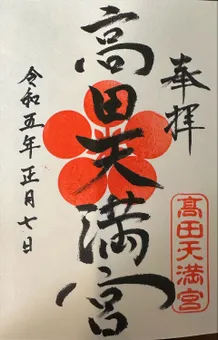 奉拝
高田天満宮
令和五年正月七日
高田天満宮